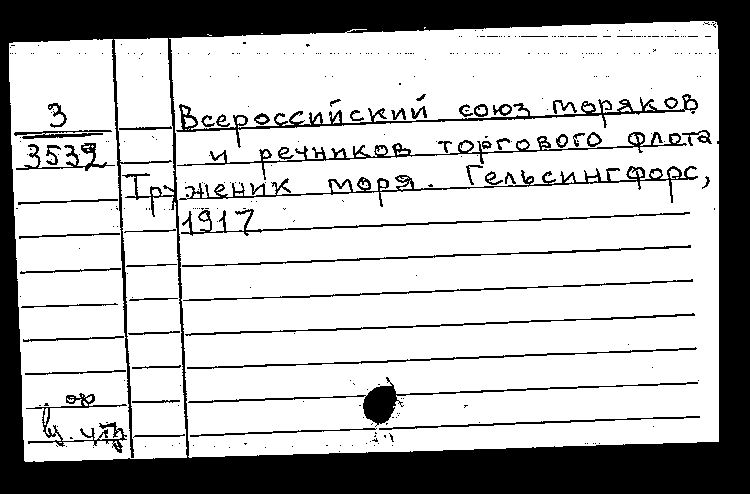 3
3539
Всероссийский союз моряков
и речников торгового флота.
Труженик моря. Гельсингфорс,
1917